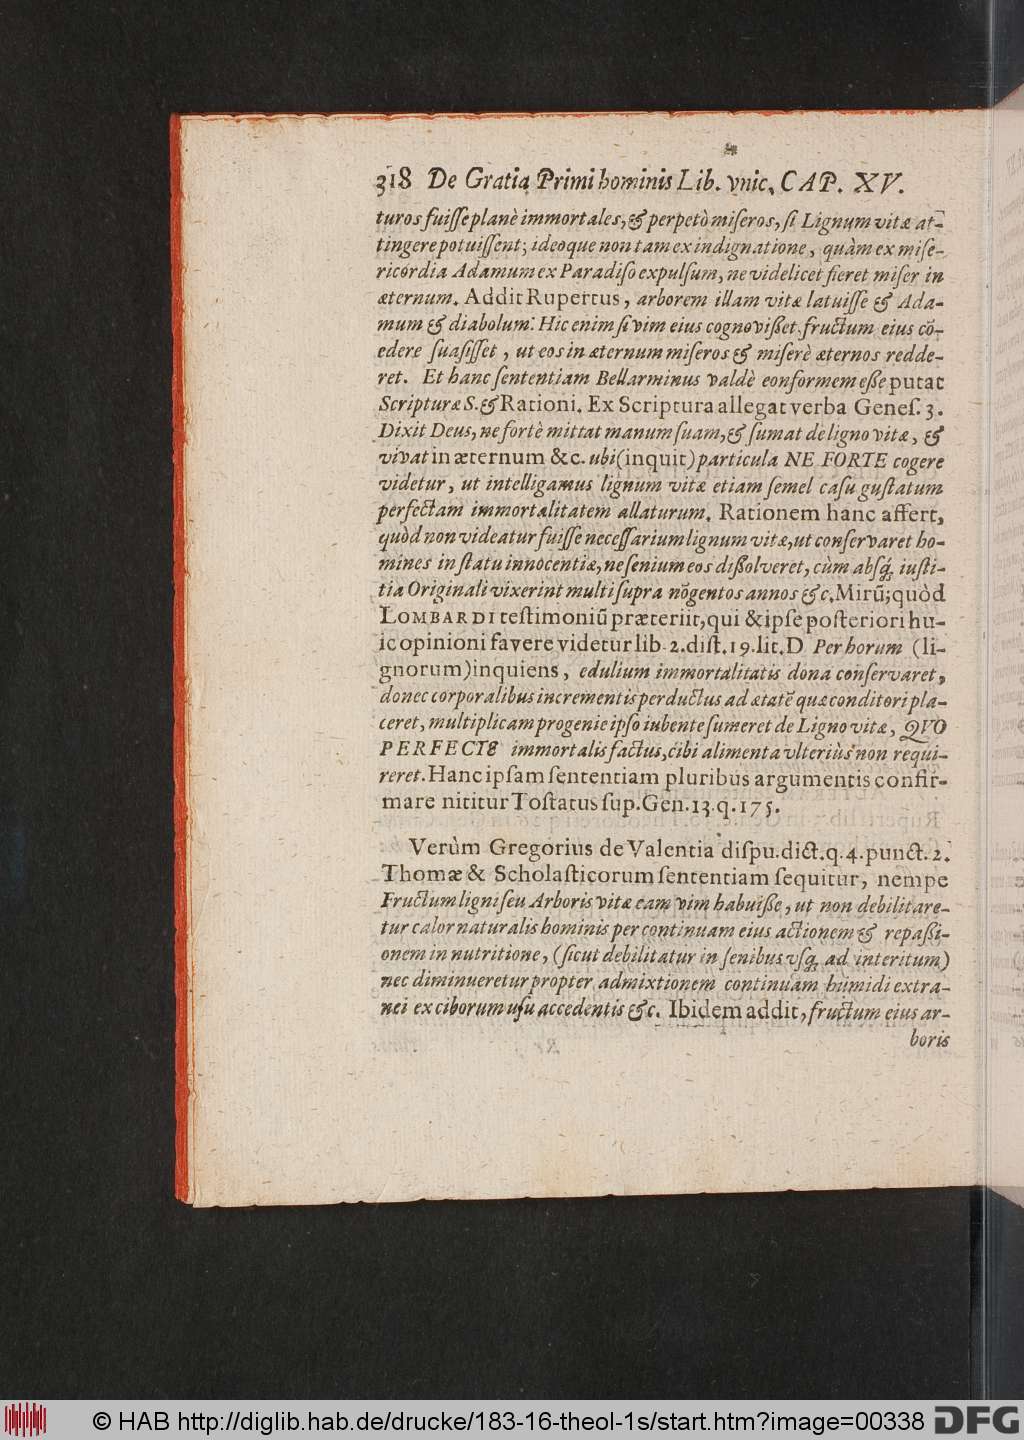 318 De Gratia Primi hominis Lib. vnic. CAP. XV.
turos fuiſſe planè immortales, & perpetò miſeros, ſi Lignum vitæ at-
tingere potuiſſent; ideoque non tam ex indignatione, quàm ex miſe-
ricordia Adamum ex Paradiſo expulſum, ne videlicet fieret miſer in
æternum. Addit Rupertus, arborem illam vitæ latuiſſe & Ada-
mum & diabolum: Hic enim ſi vim eius cognovißet fructum eius cō-
edere ſuaſiſſet, ut eos in æternum miſeros & miſerè æternos redde-
ret. Et hanc ſententiam Bellarminus valdè eonformem eße putat
Scripturæ S. & Rationi. Ex Scriptura allegat verba Geneſ. 3.
Dixit Deus, ne fortè mittat manum ſuam, & ſumat de ligno vitæ, &
vivat in æternum &c. ubi (inquit) particula NE FORTE cogere
videtur, ut intelligamus lignum vitæ etiam ſemel caſu guſtatum
perfectam immortalitatem allaturum. Rationem hanc affert,
quòd non videatur fuiſſe neceſſarium lignum vitæ, ut conſervaret ho-
mines in ſtatu innocentiæ, ne ſenium eos dißolveret, cùm abſq́; iuſti-
tia Originali vixerint multi ſupra nōgentos annos &c. Mirũ; quòd
LOMBARDI teſtimoniũ præteriit, qui & ipſe poſteriori hu-
ic opinioni favere videtur lib. 2. diſt. 19. lit. D Per horum (li-
gnorum) inquiens, edulium immortalitatis dona conſervaret,
donec corporalibus incrementis perductus ad ætatẽ quæ conditori pla-
ceret, multiplicam progenie ipſo iubente ſumeret de Ligno vitæ, QVO
PERFECTE immortalis factus, cibi alimenta vlteriùs non requi-
reret. Hanc ipſam ſententiam pluribus argumentis confir-
mare nititur Toſtatus ſup. Gen. 13. q. 175.
Verùm Gregorius de Valentia diſpu. dict. q. 4. punct. 2.
Thomæ & Scholaſticorum ſententiam ſequitur, nempe
Fructum ligni ſeu Arboris vitæ eam vim habuiße, ut non debilitare-
tur calor naturalis hominis per continuam eius actionem & repaßi-
onem in nutritione, (ſicut debilitatur in ſenibus vſq; ad interitum)
nec diminueretur propter admixtionem continuam humidi extra-
nei ex ciborum uſu accedentis &c. Ibidem addit, fructum eius ar-
boris
© HAB http://diglib.hab.de/drucke/183-16-theol-1s/start.htm?image=00338
DFG